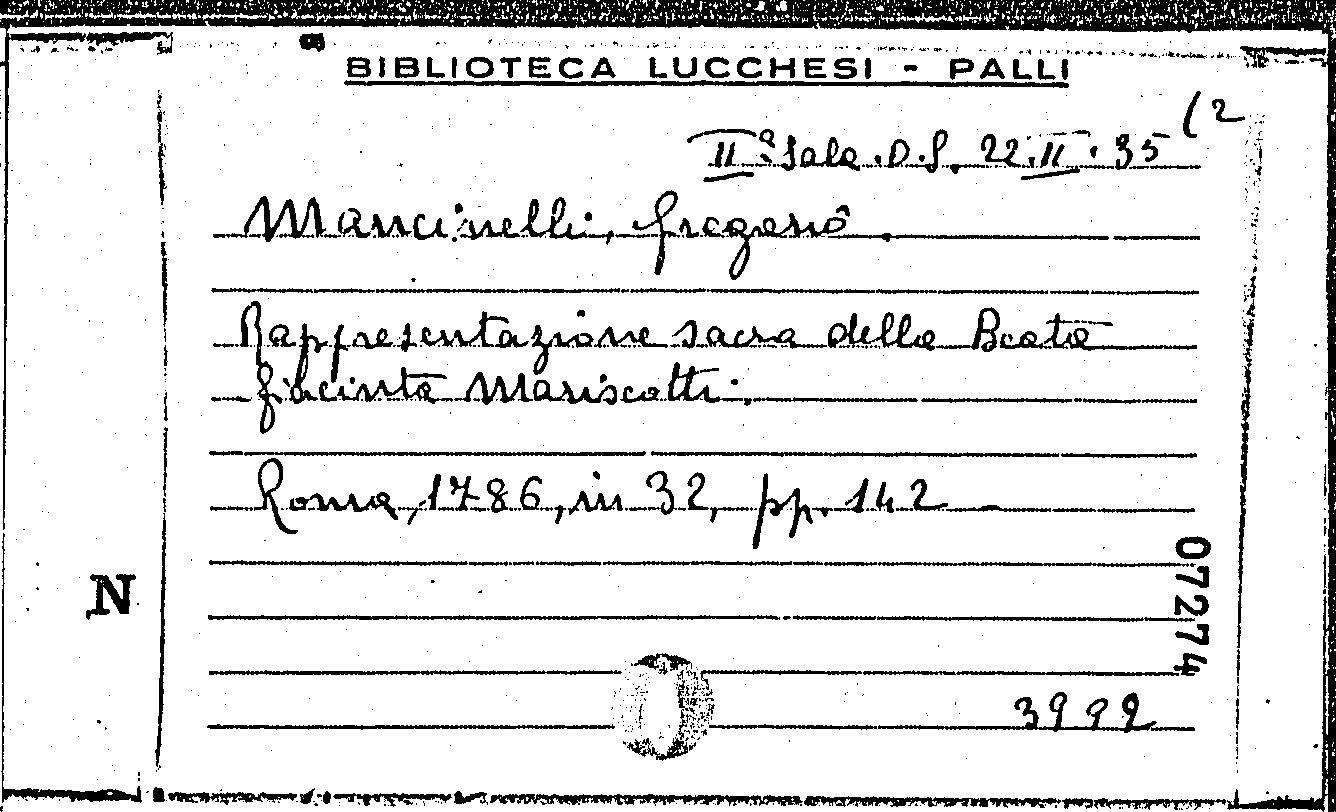 BIBLIOTECA LUCCHESI - PALLI
IIª Sala. D.S. 22.II.35 (2
Mancinelli, Gregorio.
Rappresentazione sacra della Beata
Giacinta Mariscotti.
Roma, 1786, in 32, pp. 142
N
07274
3992